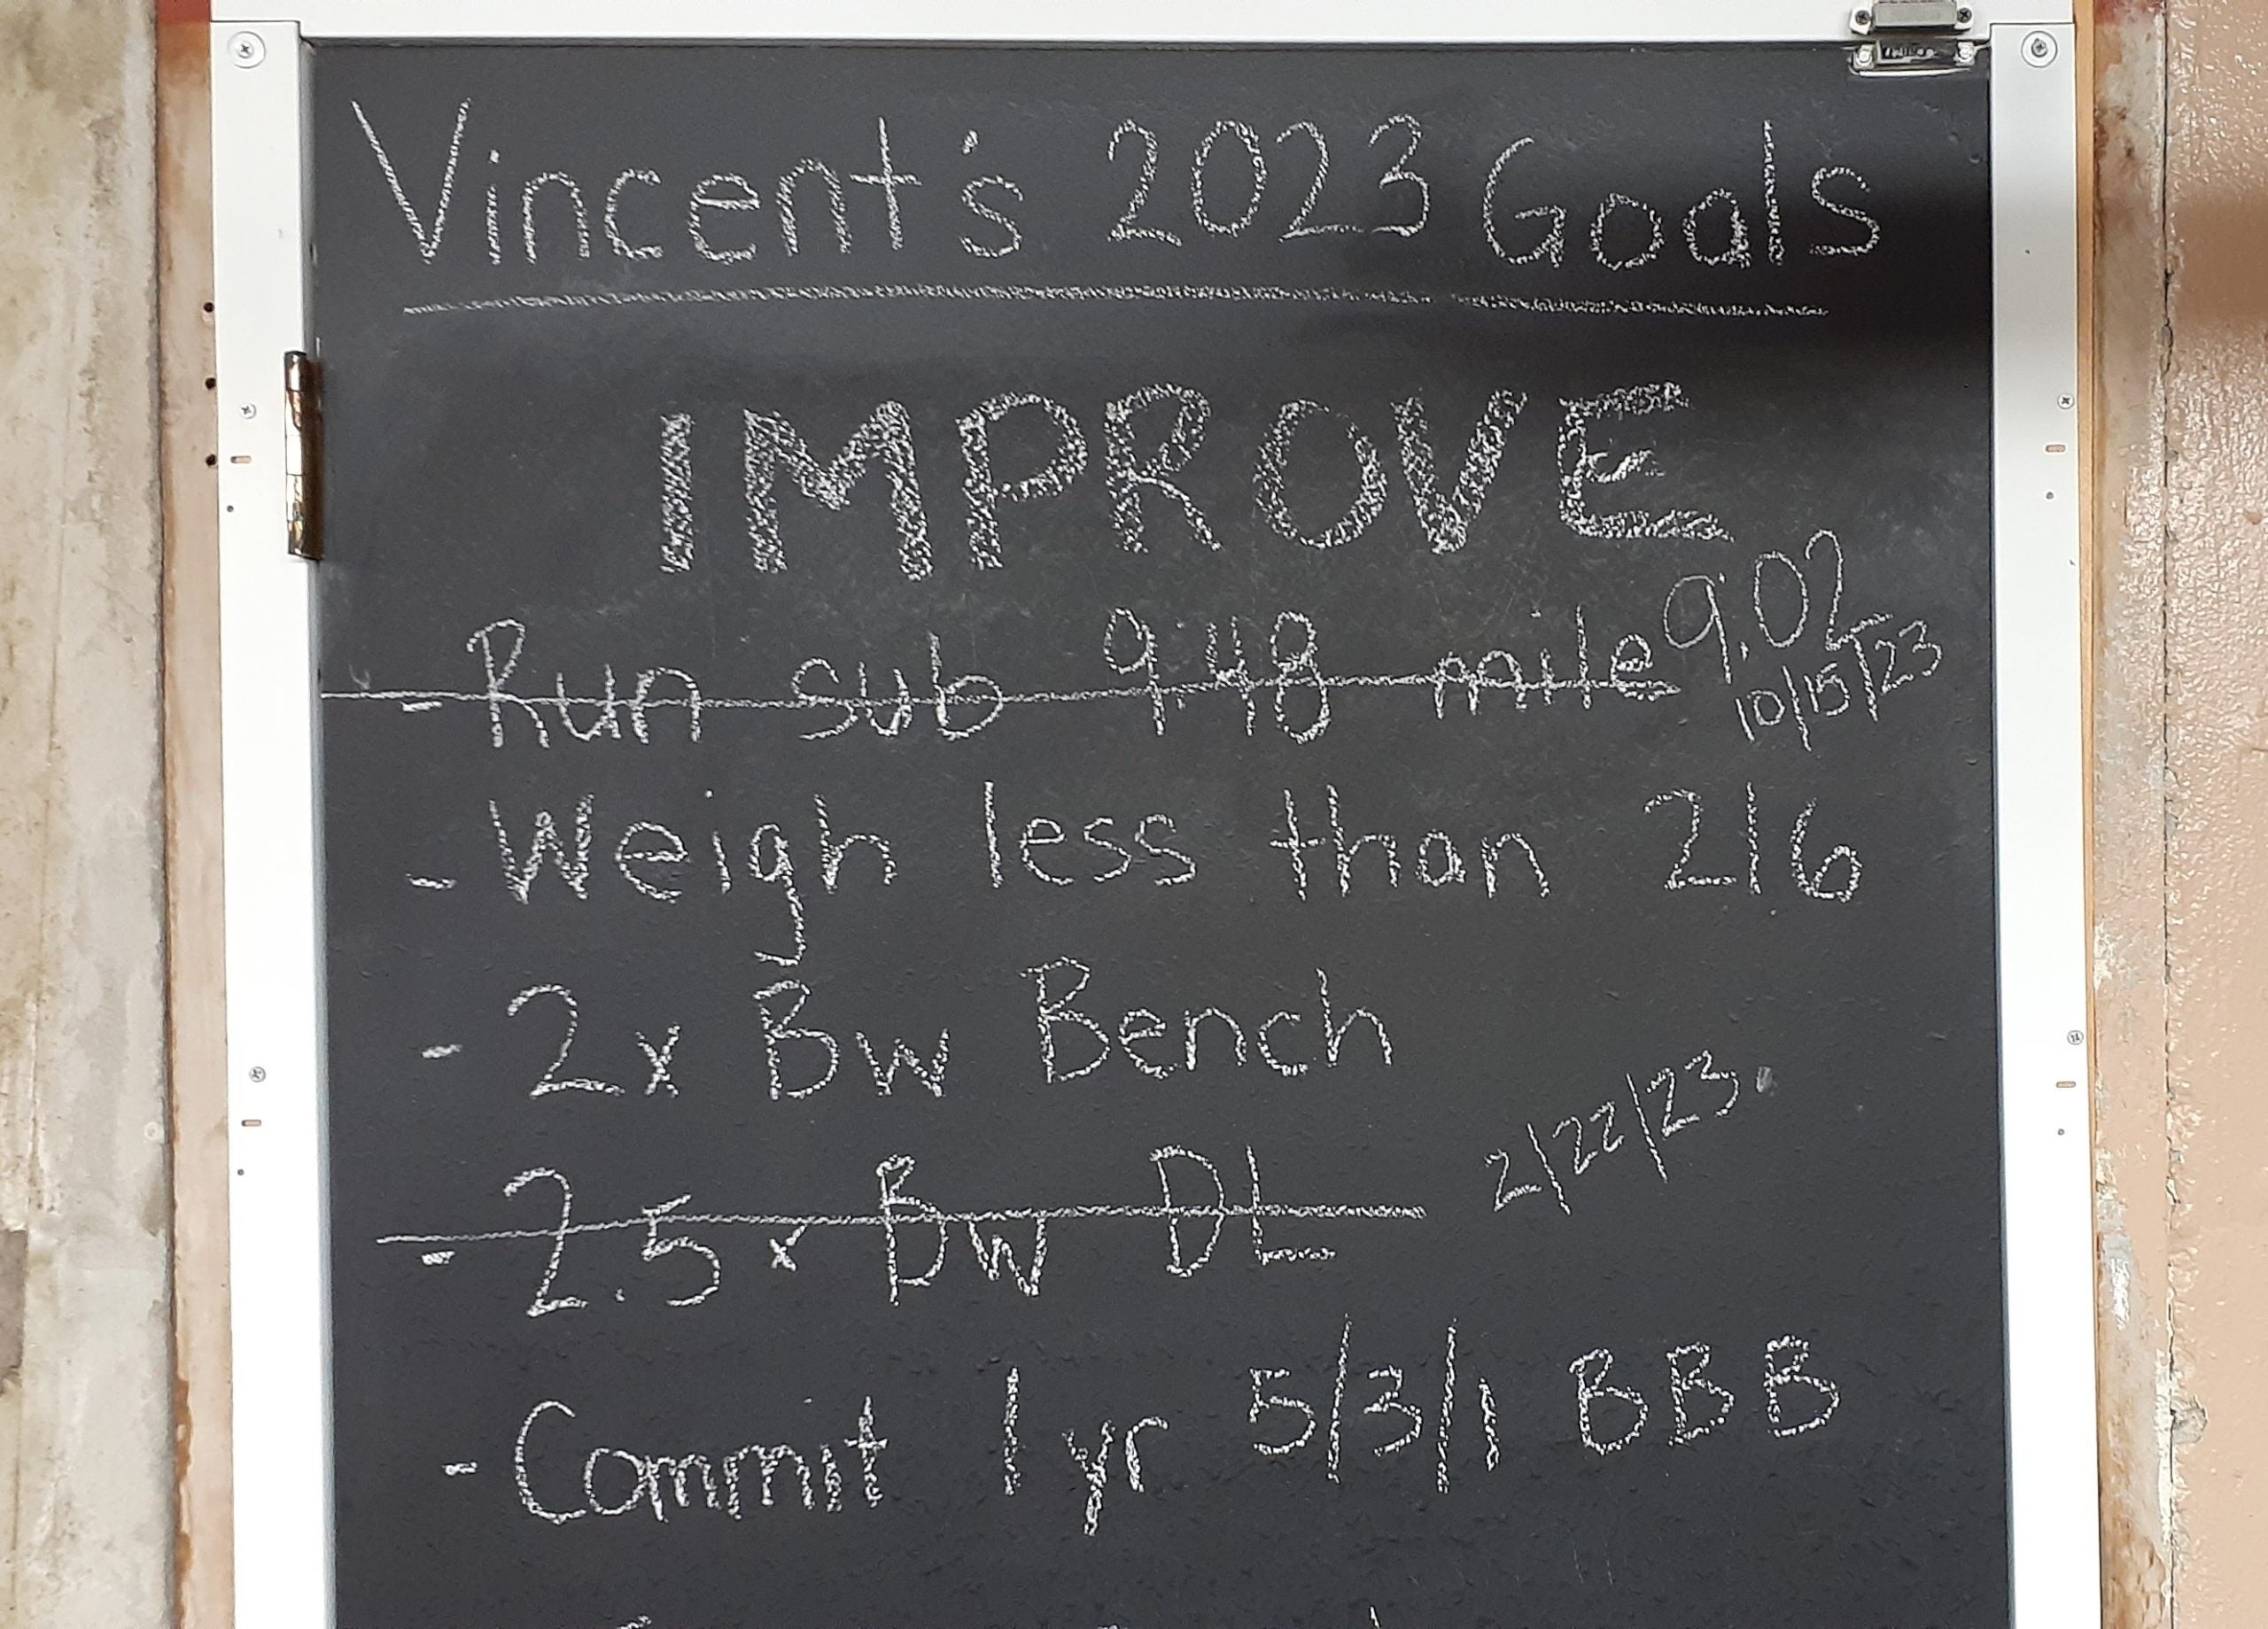 Vincent's 2023 Goals
IMPROVE
- Run sub 9:48 mile 9:02
10/15/23
- Weigh less than 216
- 2x Bw Bench
- 2.5x Bw DL 2/22/23
- Commit 1 yr 5/3/1 BBB